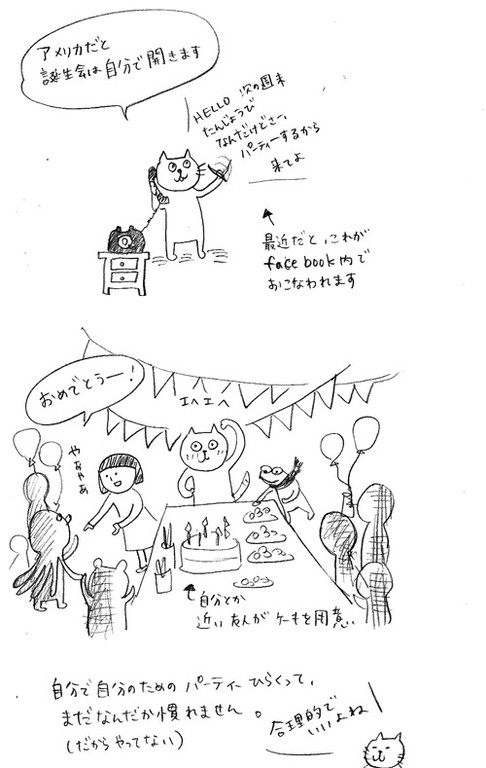 アメリカだと
誕生会は自分で開きます
HELLO 次の週末
たんじょうび
なんだけどさー、
パーティーするから
来てよ
最近だと、これが
facebook内で
おこなわれます
おめでとうー!
エヘエヘ
やぁやぁ
自分とか
近い友人がケーキを用意。
自分で自分のための パーティー ひらくって、
まだなんだか慣れません。
(だからやってない)
合理的で
いいよね